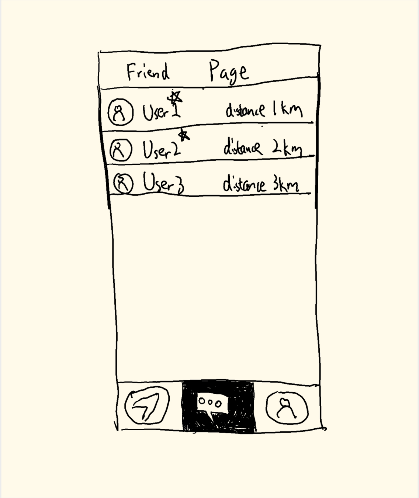 Friend Page
User1 distance 1km
User2 distance 2km
User3 distance 3km